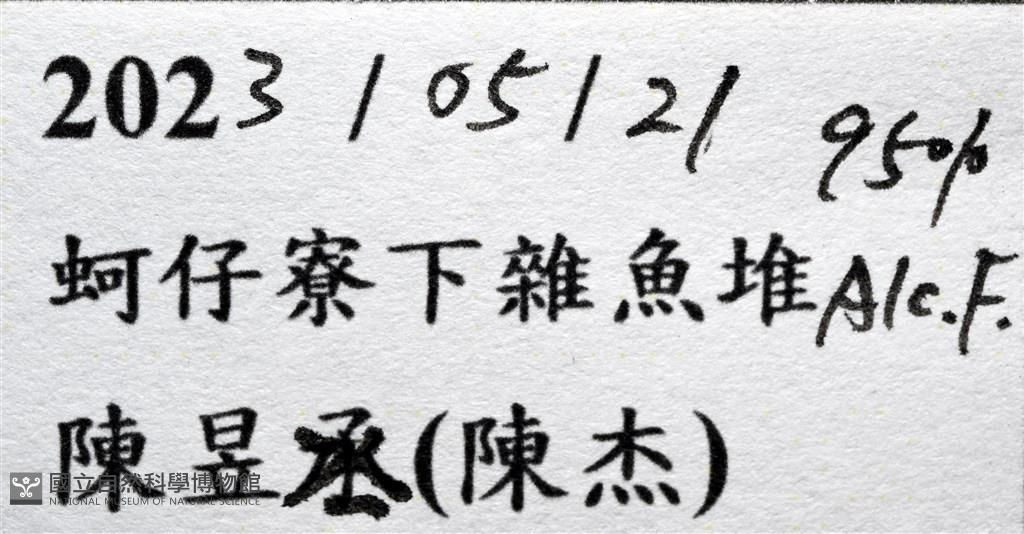 2023/05/21 95%
蚵仔寮下雜魚堆 Alc.F.
陳昱丞(陳杰)
國立自然科學博物館
NATIONAL MUSEUM OF NATURAL SCIENCE